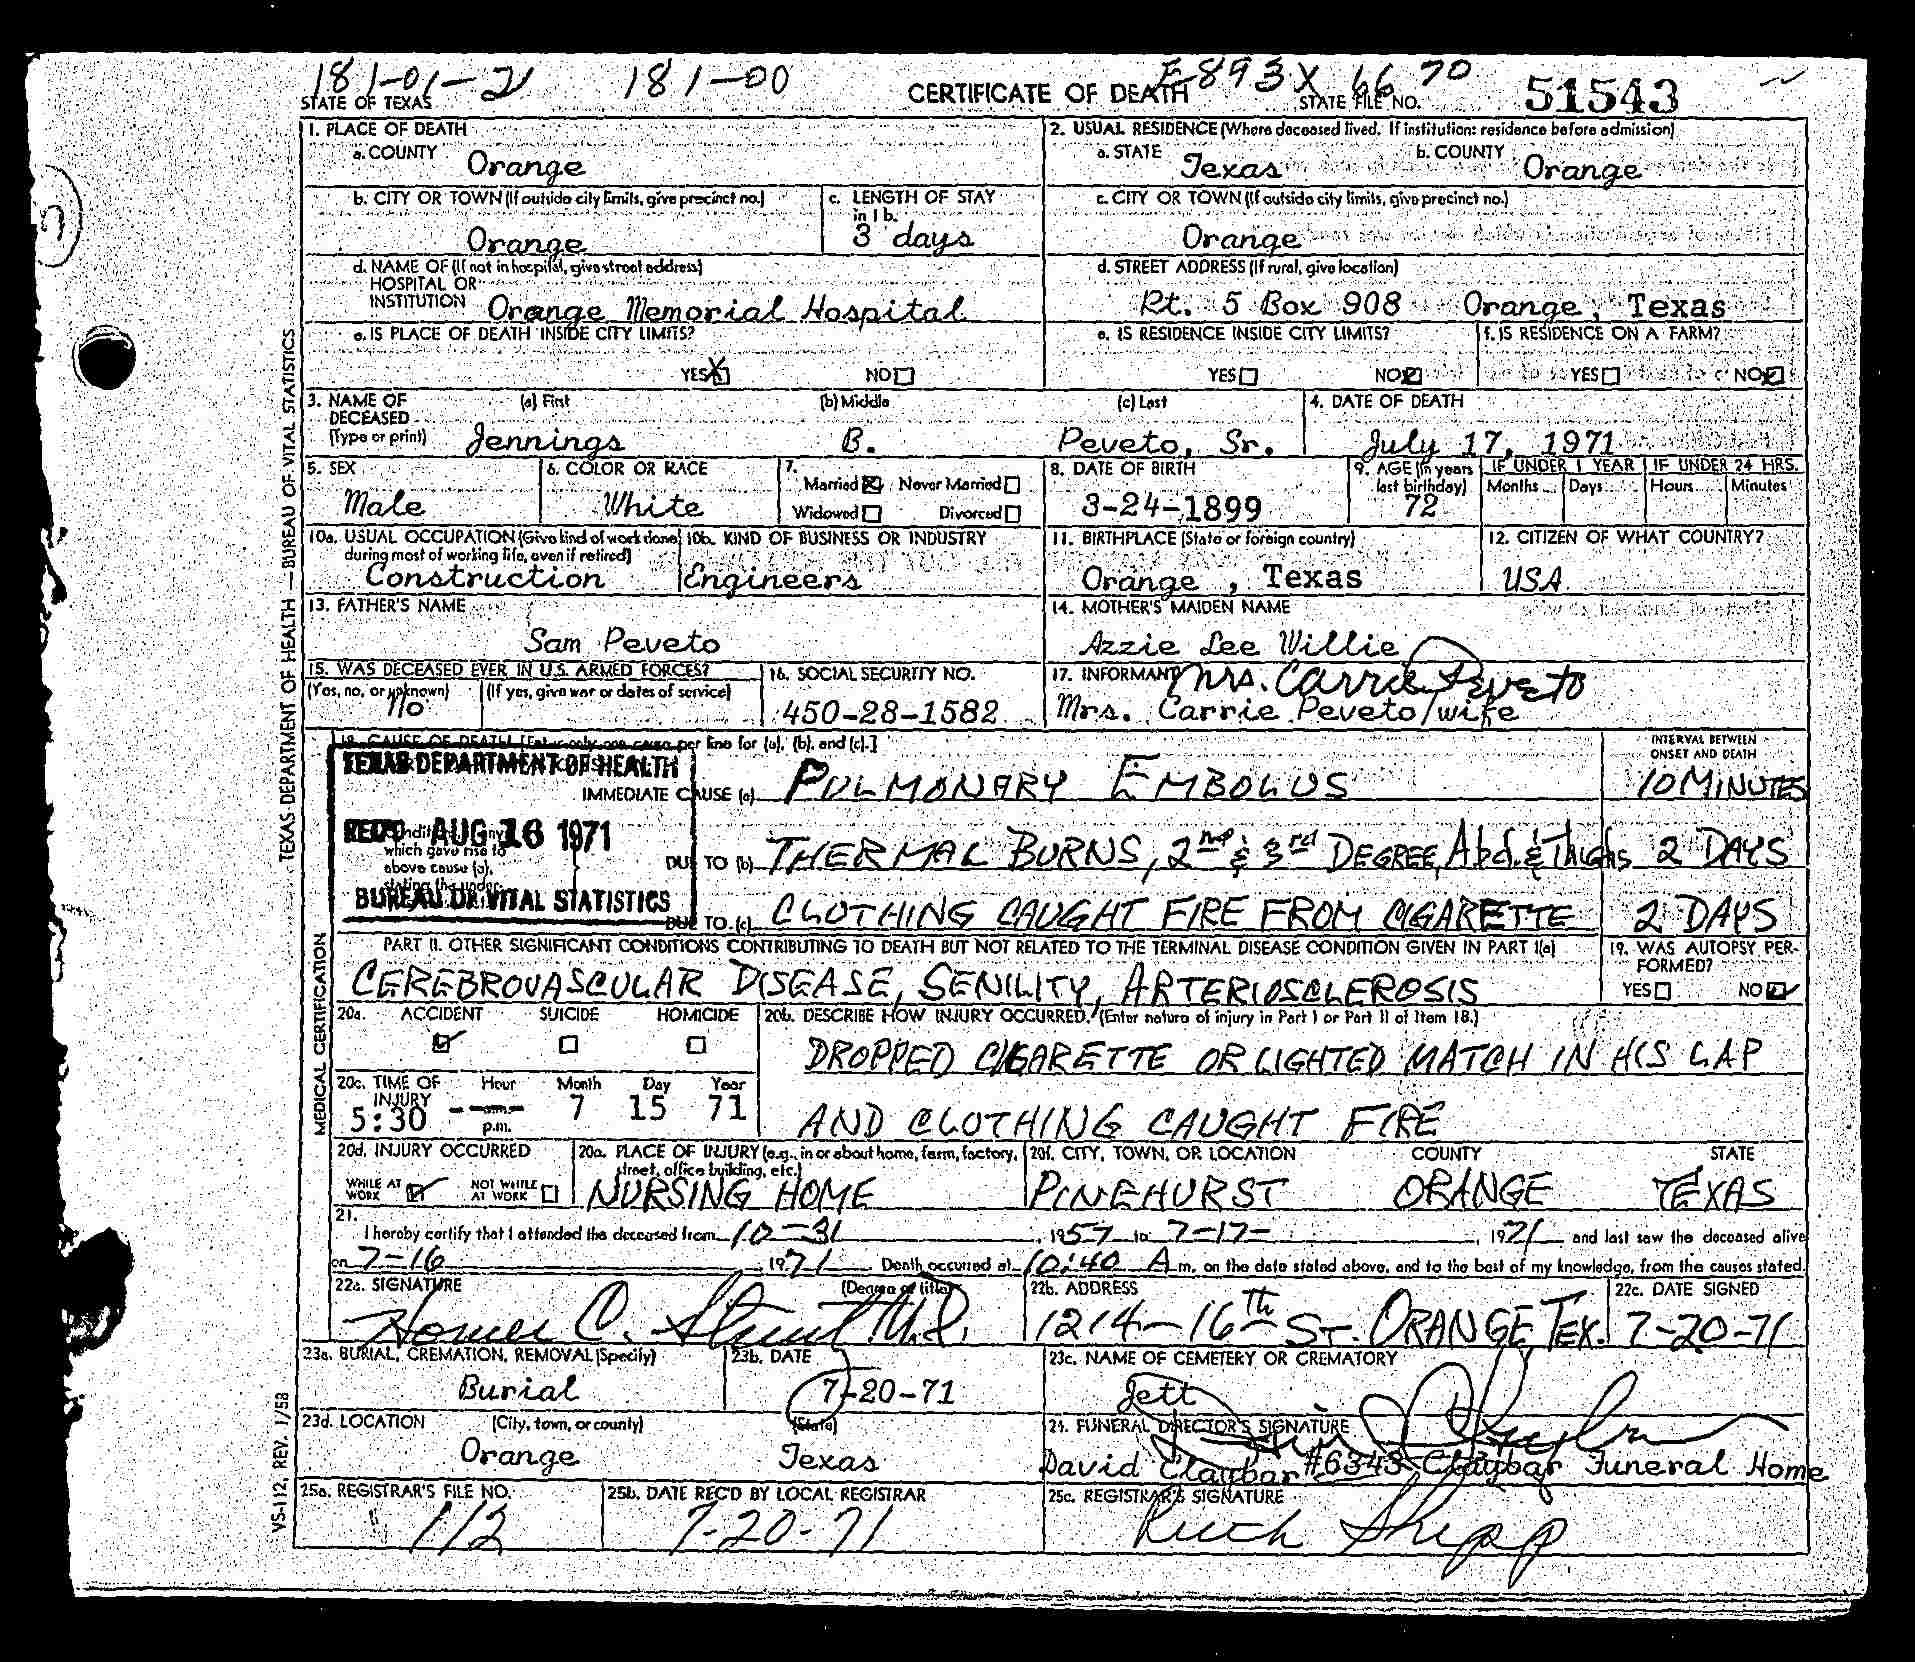 181-01-21 181-00 E893X 66 70
STATE OF TEXAS CERTIFICATE OF DEATH STATE FILE NO. 51543
1. PLACE OF DEATH 2. USUAL RESIDENCE (Where deceased lived. If institution: residence before admission)
a. COUNTY Orange a. STATE Texas b. COUNTY Orange
b. CITY OR TOWN (If outside city limits, give precinct no.) c. LENGTH OF STAY in 1b. c. CITY OR TOWN (If outside city limits, give precinct no.)
Orange 3 days Orange
d. NAME OF (If not in hospital, give street address) d. STREET ADDRESS (If rural, give location)
HOSPITAL OR
INSTITUTION Orange Memorial Hospital Rt. 5 Box 908 Orange, Texas
e. IS PLACE OF DEATH INSIDE CITY LIMITS? e. IS RESIDENCE INSIDE CITY LIMITS? f. IS RESIDENCE ON A FARM?
YES NO YES NO YES NO
3. NAME OF DECEASED (Type or print) (a) First (b) Middle (c) Last 4. DATE OF DEATH
Jennings B. Peveto, Sr. July 17, 1971
5. SEX 6. COLOR OR RACE 7. 8. DATE OF BIRTH 9. AGE (In years last birthday) IF UNDER 1 YEAR IF UNDER 24 HRS.
Married Never Married Months Days Hours Minutes
Male White Widowed Divorced 3-24-1899 72
10a. USUAL OCCUPATION (Give kind of work done during most of working life, even if retired) 10b. KIND OF BUSINESS OR INDUSTRY 11. BIRTHPLACE (State or foreign country) 12. CITIZEN OF WHAT COUNTRY?
Construction Engineers Orange, Texas USA
13. FATHER'S NAME 14. MOTHER'S MAIDEN NAME
Sam Peveto Azzie Lee Willie
15. WAS DECEASED EVER IN U.S. ARMED FORCES? 16. SOCIAL SECURITY NO. 17. INFORMANT Mrs. Carrie Peveto
(Yes, no, or unknown) (If yes, give war or dates of service)
No 450-28-1582 Mrs. Carrie Peveto/wife
18. CAUSE OF DEATH [Enter only one cause per line for (a), (b), and (c).] INTERVAL BETWEEN ONSET AND DEATH
TEXAS DEPARTMENT OF HEALTH
IMMEDIATE CAUSE (a) PULMONARY EMBOLUS 10 MINUTES
REC'D AUG 16 1971
which gave rise to above cause (a), stating the under-
DUE TO (b) THERMAL BURNS, 2nd & 3rd DEGREE, Abd. & Thighs 2 DAYS
BUREAU OF VITAL STATISTICS
DUE TO (c) CLOTHING CAUGHT FIRE FROM CIGARETTE 2 DAYS
PART II. OTHER SIGNIFICANT CONDITIONS CONTRIBUTING TO DEATH BUT NOT RELATED TO THE TERMINAL DISEASE CONDITION GIVEN IN PART I(a) 19. WAS AUTOPSY PERFORMED?
CEREBROVASCULAR DISEASE, SENILITY, ARTERIOSCLEROSIS YES NO
20a. ACCIDENT SUICIDE HOMICIDE 20b. DESCRIBE HOW INJURY OCCURRED. (Enter nature of injury in Part I or Part II of Item 18.)
DROPPED CIGARETTE OR LIGHTED MATCH IN HIS LAP
20c. TIME OF INJURY Hour Month Day Year
5:30 a.m. p.m. 7 15 71 AND CLOTHING CAUGHT FIRE
20d. INJURY OCCURRED 20e. PLACE OF INJURY (e.g., in or about home, farm, factory, street, office building, etc.) 20f. CITY, TOWN, OR LOCATION COUNTY STATE
WHILE AT WORK NOT WHILE AT WORK NURSING HOME PINEHURST ORANGE TEXAS
21.
I hereby certify that I attended the deceased from 10-31, 1957 to 7-17-, 1971 and last saw the deceased alive
on 7-16, 1971 Death occurred at 10:40 A m. on the date stated above, and to the best of my knowledge, from the causes stated.
22a. SIGNATURE (Degree or title) 22b. ADDRESS 22c. DATE SIGNED
Homer C. M.D. 1214-16th ST. ORANGE, TEX. 7-20-71
23a. BURIAL, CREMATION, REMOVAL (Specify) 23b. DATE 23c. NAME OF CEMETERY OR CREMATORY
Burial 7-20-71 Jett
23d. LOCATION (City, town, or county) (State) 24. FUNERAL DIRECTOR'S SIGNATURE
Orange Texas David Claybar #6343 Claybar Funeral Home
25a. REGISTRAR'S FILE NO. 25b. DATE REC'D BY LOCAL REGISTRAR 25c. REGISTRAR'S SIGNATURE
112 7-20-71 Ruth Shipp
TEXAS DEPARTMENT OF HEALTH — BUREAU OF VITAL STATISTICS
MEDICAL CERTIFICATION
VS-112, REV. 1/58